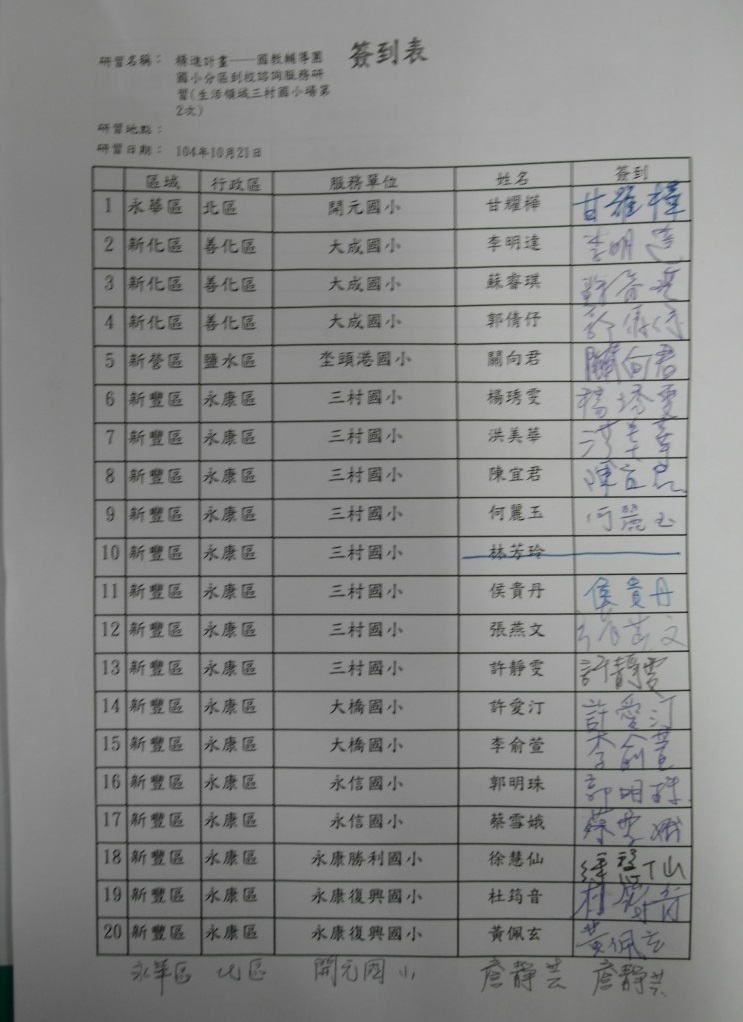 簽到表
研習名稱： 精進計畫——國教輔導團
國小分區到校諮詢服務研
習(生活領域三村國小場第
2次)
研習地點：
研習日期： 104年10月21日
區域 行政區 服務單位 姓名 簽到
1 永華區 北區 開元國小 甘耀樺 甘耀樺
2 新化區 善化區 大成國小 李明達 李明達
3 新化區 善化區 大成國小 蘇睿琪
4 新化區 善化區 大成國小 郭倩伃
5 新營區 鹽水區 坔頭港國小 關向君 關向君
6 新豐區 永康區 三村國小 楊琇雯
7 新豐區 永康區 三村國小 洪美華 洪美華
8 新豐區 永康區 三村國小 陳宜君 陳宜君
9 新豐區 永康區 三村國小 何麗玉 何麗玉
10 新豐區 永康區 三村國小 林芳玲
11 新豐區 永康區 三村國小 侯貴丹 侯貴丹
12 新豐區 永康區 三村國小 張燕文 張燕文
13 新豐區 永康區 三村國小 許靜雯 許靜雯
14 新豐區 永康區 大橋國小 許愛汀 許愛汀
15 新豐區 永康區 大橋國小 李俞萱 李俞萱
16 新豐區 永康區 永信國小 郭明珠 郭明珠
17 新豐區 永康區 永信國小 蔡雪娥 蔡雪娥
18 新豐區 永康區 永康勝利國小 徐慧仙 徐慧仙
19 新豐區 永康區 永康復興國小 杜筠音 杜筠音
20 新豐區 永康區 永康復興國小 黃佩玄 黃佩玄
永華區 北區 開元國小 詹靜芸 詹靜芸